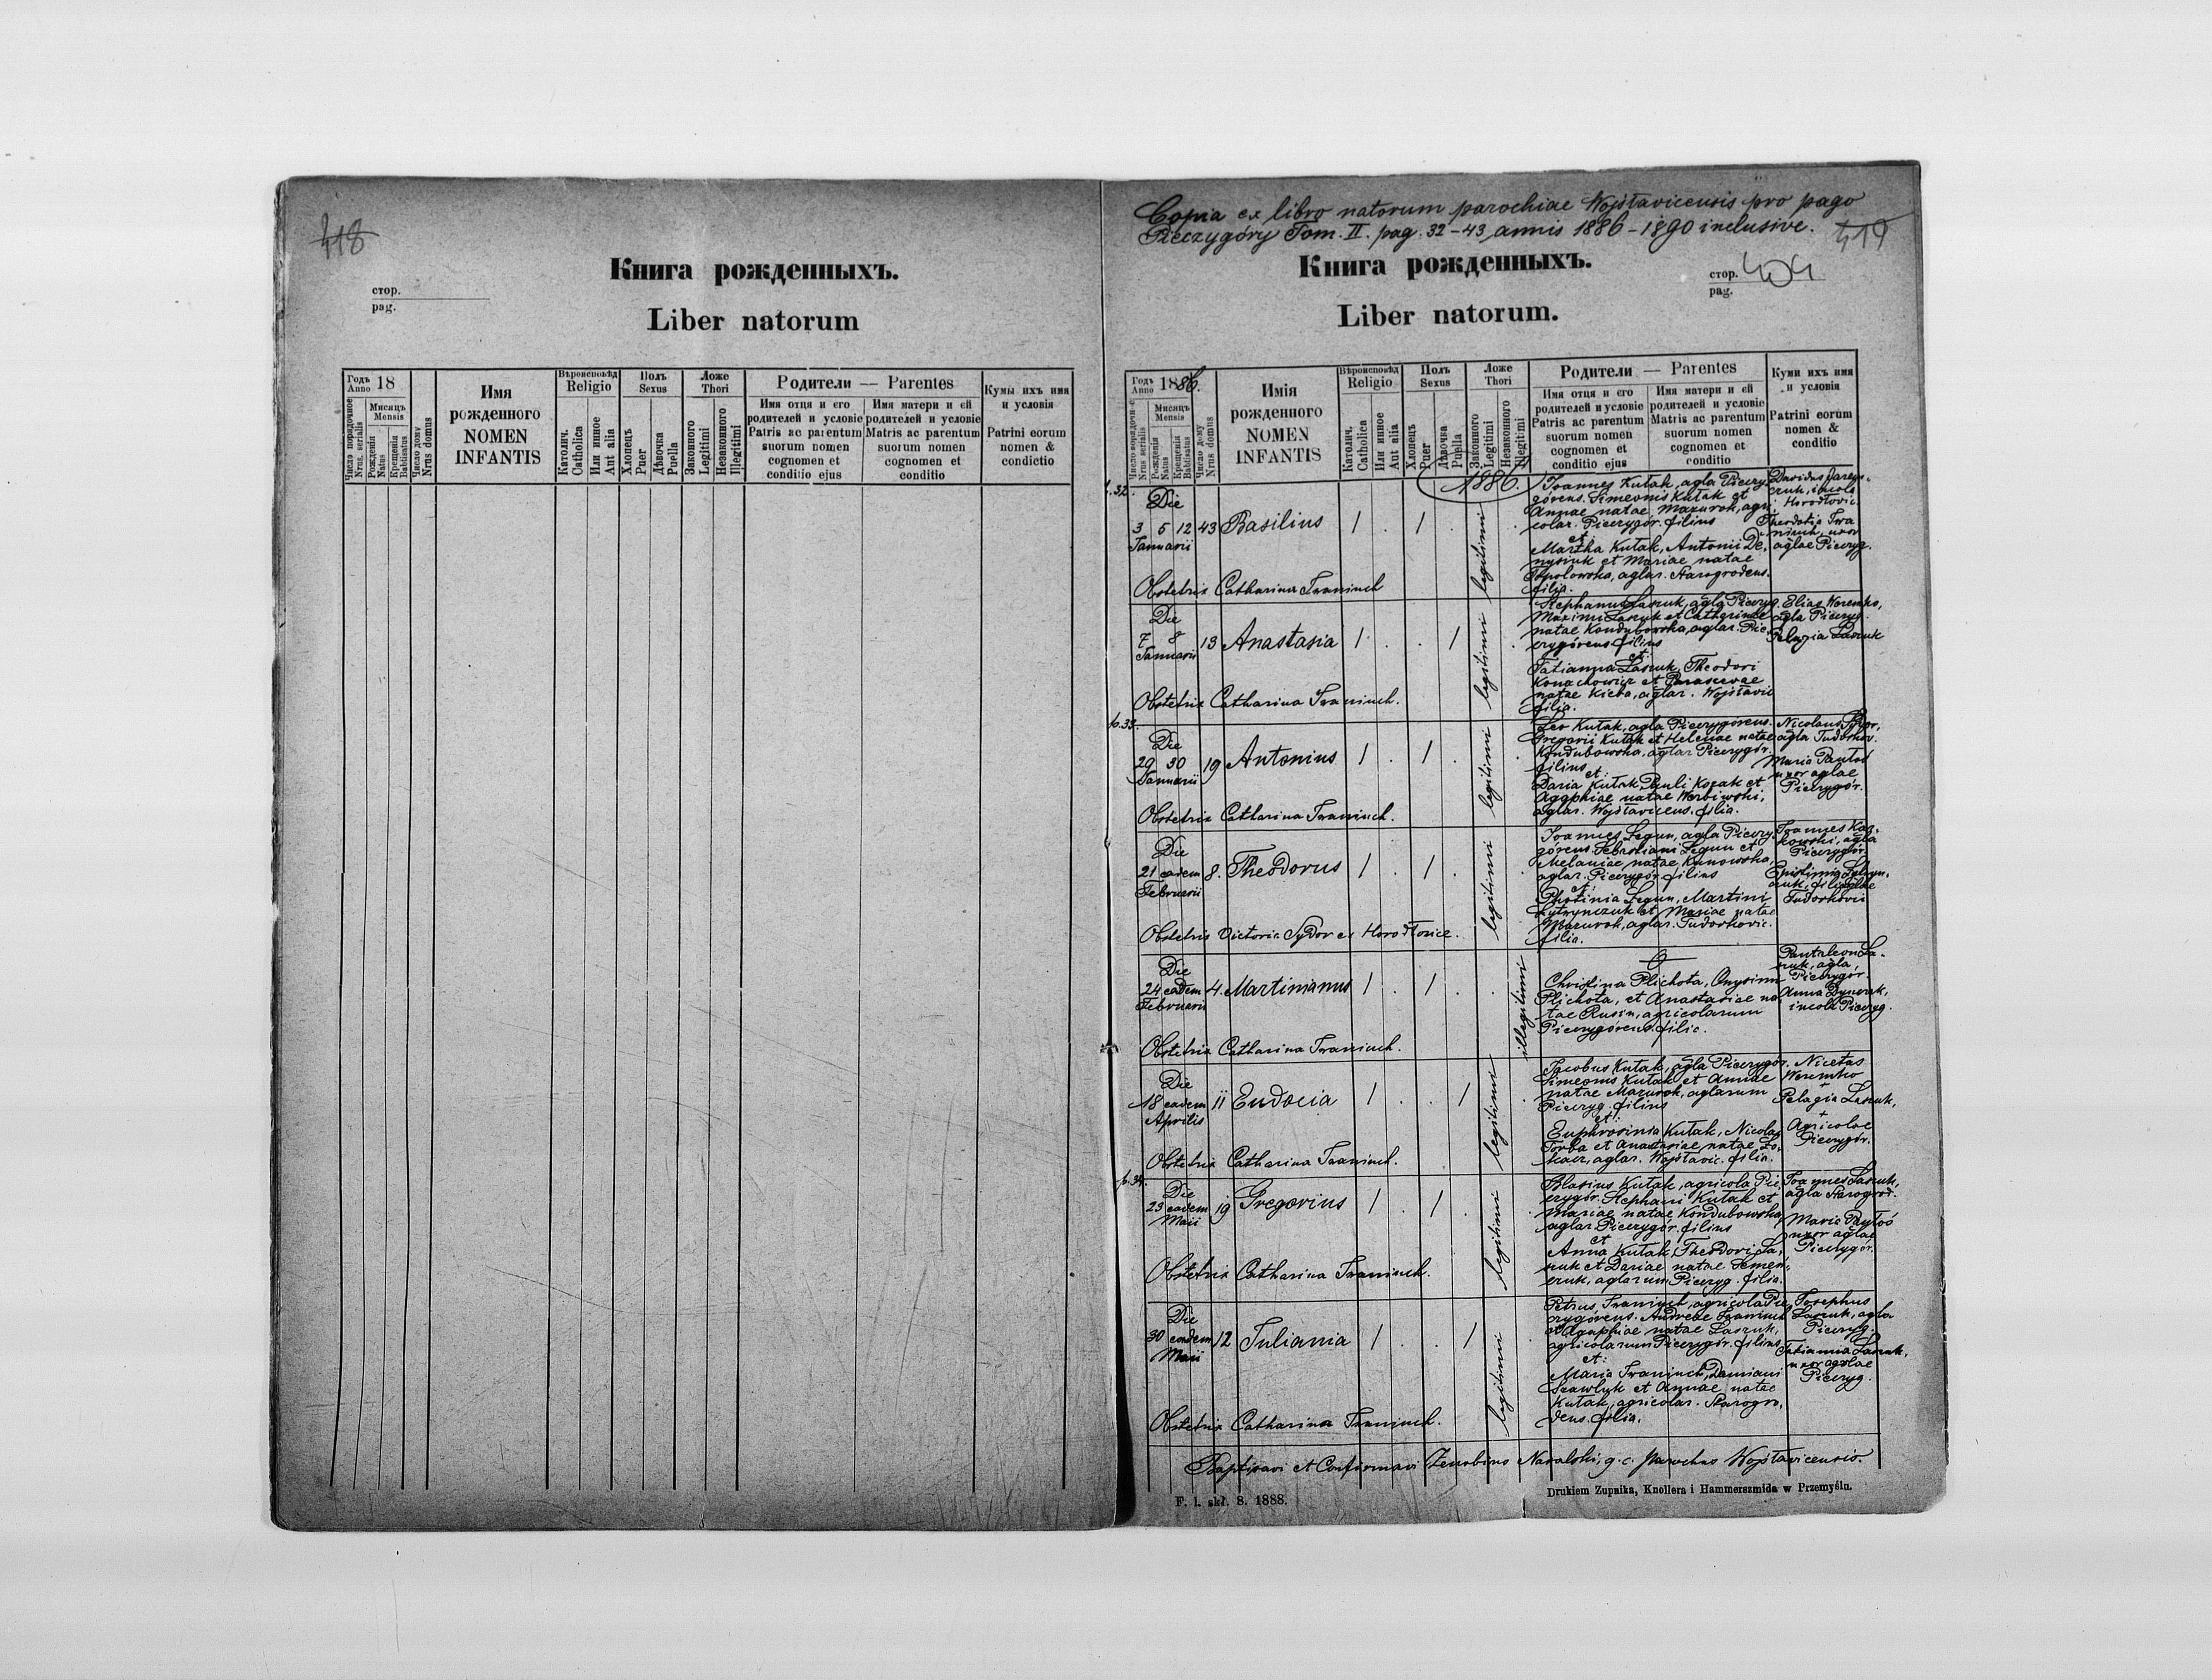 418
Книга рожденныхъ.
стор.
pag.
Liber natorum
Годъ Anno 18
Число порядочное Nrus. serialis
Мѣсяцъ Mensis
Рожденія Natus
Крещенія Babtisatus
Число дому Nrus domus
Имя
рожденного
NOMEN
INFANTIS
Вѣроисповѣд
Religio
Католич. Catholica
Или инное Aut alia
Полъ
Sexus
Хлопецъ Puer
Дѣвочка Puella
Ложе
Thori
Законного Legitimi
Незаконного Illegitimi
Родители — Parentes
Имя отця и его
родителей и условіе
Patris ac parentum
suorum nomen
cognomen et
conditio ejus
Имя матери и ей
родителей и условіе
Matris ac parentum
suorum nomen
cognomen et
conditio
Кумы ихъ имя
и условія
Patrini eorum
nomen &
condictio
Copia ex libro natorum parochiae Wojsławicensis pro pago
Pieczygóry Tom. II. pag. 32-43 annis 1886-1890 inclusive.
419
Книга рожденныхъ.
стор. 404
pag.
Liber natorum.
Годъ Anno 1886.
Мѣсяцъ Mensis
Рожденія Natus
Крещенія Babtisatus
Число дому Nrus domus
Имія
рожденного
NOMEN
INFANTIS
Вѣроисповѣд
Religio
Католич. Catholica
Или инное Aut alia
Полъ
Sexus
Хлопецъ Puer
Дѣвочка Puella
Ложе
Thori
Законного Legitimi
Незаконного Illegitimi
Родители — Parentes
Имя отця и его
родителей и условіе
Patris ac parentum
suorum nomen
cognomen et
conditio ejus
Имя матери и ей
родителей и условіе
Matris ac parentum
suorum nomen
cognomen et
conditio
Куми ихъ имя
и условія
Patrini eorum
nomen &
conditio
p. 32.
1886.
Die
3 5 12 43 Basilius 1 . 1 . legitimi .
Januarii
Joannes Kutak, agla Pieczy
górens. Simeonis Kutak et
Annae natae Mazurok, agri
colar. Pieczygór. filius
et:
Martha Kutak, Antonii De,
nysiuk et Mariae natae
Topolowska, aglar. Starogrodens.
filia.
incola
Horodłovic.
uxor
aglae Pieczyg.
Obstetrix Catharina Iwaniuch
Die
7 8 13 Anastasia 1 . . 1 legitimi .
Januarii
Stephanus Laszuk, agla Pieczyg.
Maximi Laszuk et Catharinae
natae Kondubowska, aglar. Pie
czygórens filius
et:
Tatianna Laszuk, Theodori
Konachowicz et Parascevae
natae Kicba, aglar. Wojsławic
filia.
Elias Weremko,
agla Pieczyg.
Pelagia Laszuk
Obstetrix Catharina Iwaniuch.
p. 33.
Die
29 30 19 Antonius 1 . 1 . legitimi .
Januarii
Leo Kutak, agla Pieczygórens.
Gregorii Kutak et Helenae natae
Kondubowska, aglar Pieczygór.
filius
et:
Daria Kutak, Pauli Kozak et
Agaphiae natae Werbiwski,
aglar. Wojsławicens. filia.
Nicolaus Sydor,
agla Tudorkov.
Maria Pautoś
uxor aglae
Pieczygór.
Obstetrix Catharina Iwaniuch.
Die
21 eadem 8. Theodorus 1 . 1 . legitimi .
Februarii
Joannes Legun, agla Pieczy
górens. Sebastiani Legun et
Melaniae natae Kunowska,
aglar. Pieczygór. filius
et:
Photinia Legun, Martini
Lytrynczuk et Mariae natae
Mazurok, aglar. Tudorkovic.
filia.
Joannes Kac,
kowski, agla
Pieczygór.
filia aglae
Tudorkovic
Obstetrix Victoria Sydor ex Horodłovice.
Die
24 eadem 4. Martinianus 1 . 1 . . illegitimi
Februarii
Christina Plichota, Onysimi
Plichota, et Anastasiae na
tae Rusin, agricolarum
Pieczygórens. filia.
Pantaleon La-
szuk, agla
Pieczygór.
incola Pieczyg.
Obstetrix Catharina Iwaniuch.
Die
18 eadem 11 Eudocia 1 . . 1 legitimi .
Aprilis
Jacobus Kutak, agla Pieczygór.
Simeonis Kutak et Annae
natae Mazurok, aglarum
Pieczyg. filius
et:
Euphrosinia Kutak, Nicolai
Torba et Anastasiae natae
aglar. Wojsławic. filia.
Nicetas
Weremko
+
Pelagia Laszuk,
+
Agricolae
Pieczygór.
Obstetrix Catharina Iwaniuch.
p. 34.
Die
23 eadem 19 Gregorius 1 . 1 . legitimi .
Maii
Blasius Kutak, agricola Pie,
czygór. Stephani Kutak et
Mariae natae Kondubowska
aglar. Pieczygór. filius
et
Anna Kutak, Theodori La,
szuk et Dariae natae Semen,
czuk, aglarum Pieczyg. filia.
Joannes Laszuk,
agla Starogrod.
Maria Pautoś
uxor aglae
Pieczygór.
Obstetrix Catharina Iwaniuch.
Die
30 eadem 12 Juliania 1 . . 1 legitimi .
Maii
Petrus Iwaniuch, agricola Pie,
czygórens. Andreae Iwaniuch
et Agaphiae natae Laszuk,
agricolarum Pieczygór. filius
et:
Maria Iwaniuch, Damiani
Szawlyk et Annae natae
Kutak, agricolar. Starogro,
dens. filia.
Josephus
Laszuk, agla
Pieczyg.
Tatianna Laszuk,
uxor agolae
Pieczyg.
Obstetrix Catharina Iwaniuch.
Baptisavi et Confirmavi Zenobius Nawalski, g. c. Parochus Wojsławicensis.
F. l. skł. 8. 1888.
Drukiem Zupnika, Knollera i Hammerszmida w Przemyślu.